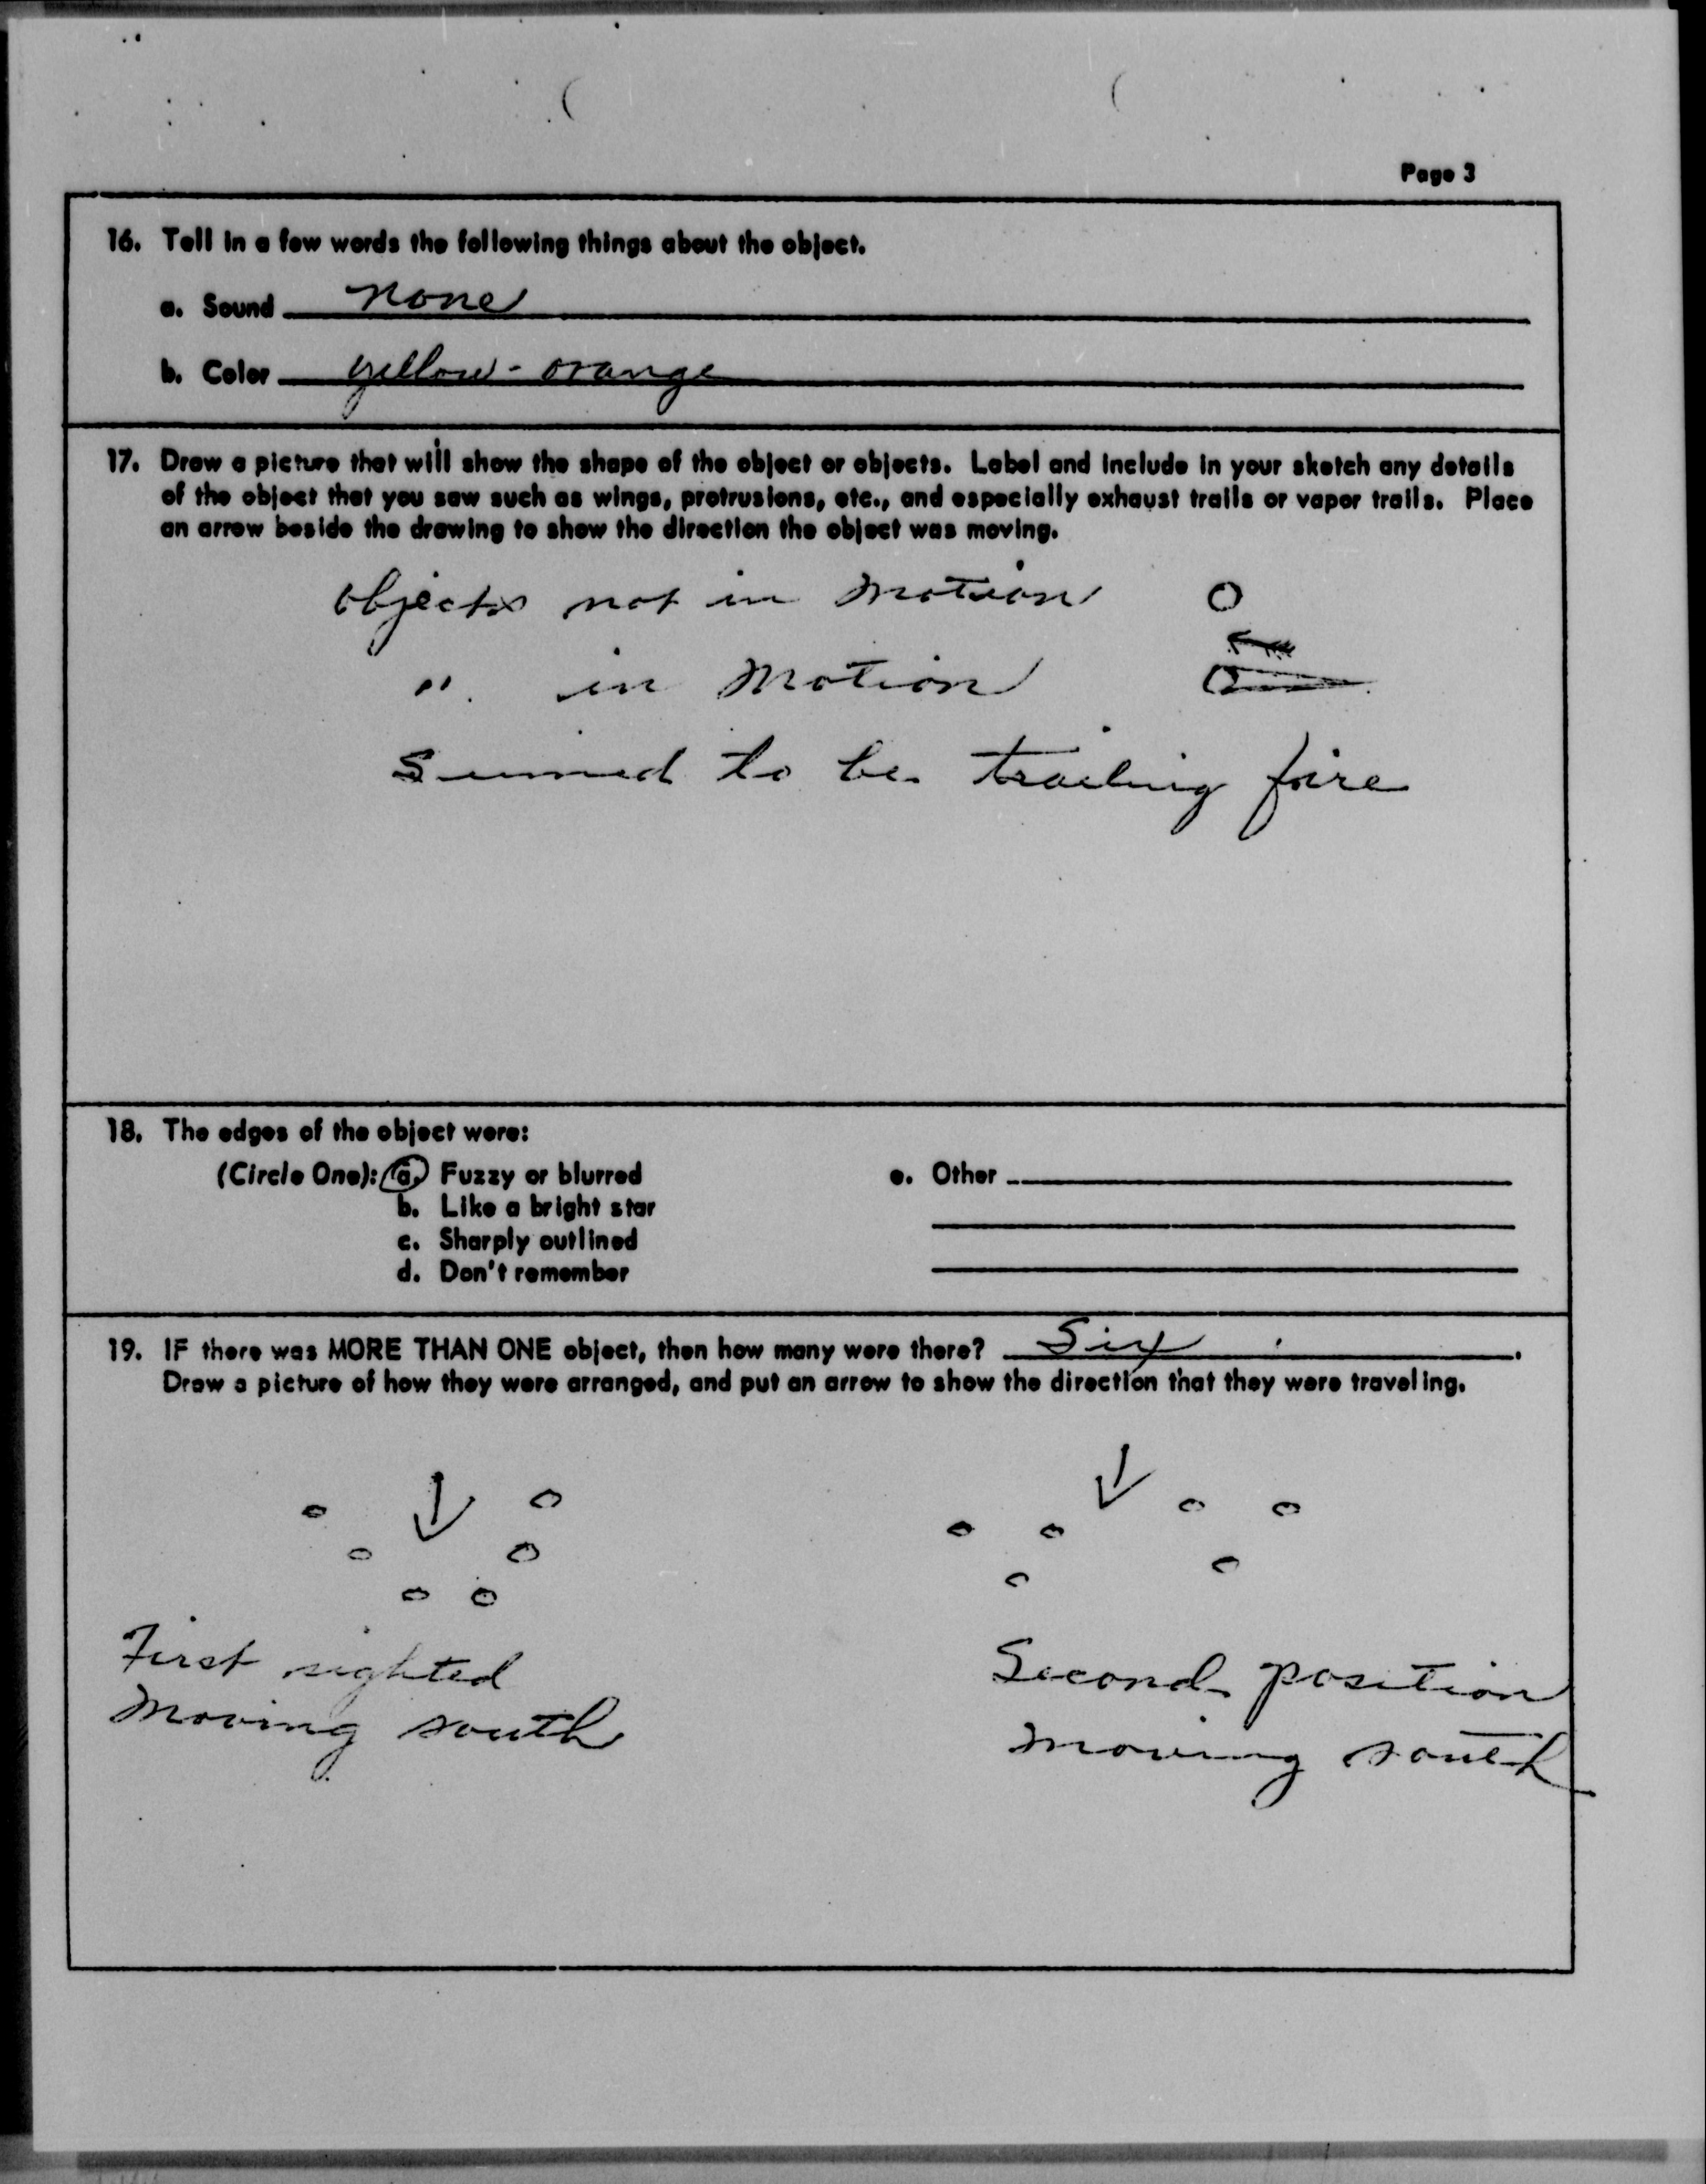 Page 3
16. Tell in a few words the following things about the object.
a. Sound none
b. Color yellow-orange
17. Draw a picture that will show the shape of the object or objects. Label and include in your sketch any details
of the object that you saw such as wings, protrusions, etc., and especially exhaust trails or vapor trails. Place
an arrow beside the drawing to show the direction the object was moving.
objects not in motion
" in motion
Seemed to be trailing fire
18. The edges of the object were:
(Circle One): a. Fuzzy or blurred
b. Like a bright star
c. Sharply outlined
d. Don't remember
e. Other
19. IF there was MORE THAN ONE object, then how many were there? Six.
Draw a picture of how they were arranged, and put an arrow to show the direction that they were traveling.
First sighted
moving south
Second position
moving south